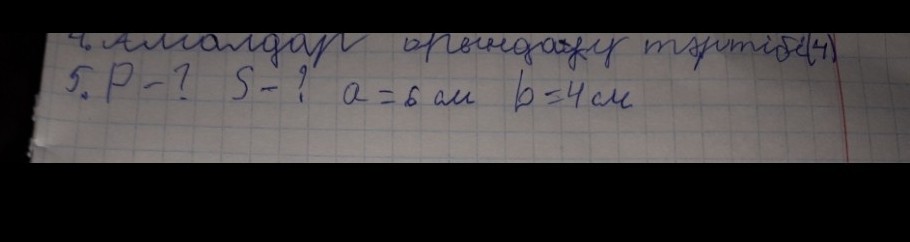 4. Амалдар орындау тәртібі(4)
5. P - ? S - ? a = 6 см b = 4 см